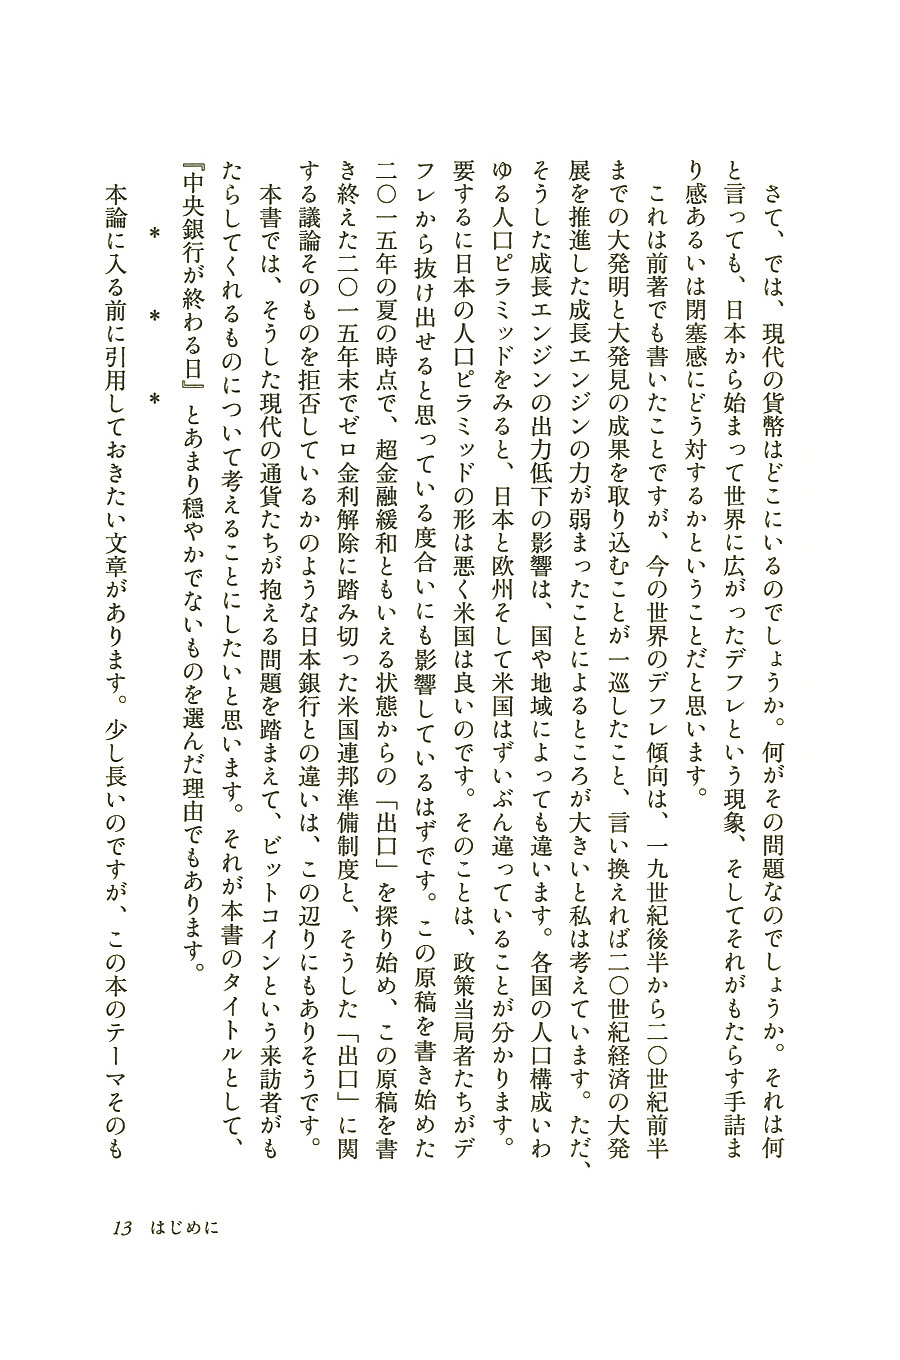 さて、では、現代の貨幣はどこにいるのでしょうか。何がその問題なのでしょうか。それは何
と言っても、日本から始まって世界に広がったデフレという現象、そしてそれがもたらす手詰ま
り感あるいは閉塞感にどう対するかということだと思います。
これは前著でも書いたことですが、今の世界のデフレ傾向は、一九世紀後半から二〇世紀前半
までの大発明と大発見の成果を取り込むことが一巡したこと、言い換えれば二〇世紀経済の大発
展を推進した成長エンジンの力が弱まったことによるところが大きいと私は考えています。ただ、
そうした成長エンジンの出力低下の影響は、国や地域によっても違います。各国の人口構成いわ
ゆる人口ピラミッドをみると、日本と欧州そして米国はずいぶん違っていることが分かります。
要するに日本の人口ピラミッドの形は悪く米国は良いのです。そのことは、政策当局者たちがデ
フレから抜け出せると思っている度合いにも影響しているはずです。この原稿を書き始めた
二〇一五年の夏の時点で、超金融緩和ともいえる状態からの「出口」を探り始め、この原稿を書
き終えた二〇一五年末でゼロ金利解除に踏み切った米国連邦準備制度と、そうした「出口」に関
する議論そのものを拒否しているかのような日本銀行との違いは、この辺りにもありそうです。
本書では、そうした現代の通貨たちが抱える問題を踏まえて、ビットコインという来訪者がも
たらしてくれるものについて考えることにしたいと思います。それが本書のタイトルとして、
『中央銀行が終わる日』とあまり穏やかでないものを選んだ理由でもあります。
＊　＊　＊
本論に入る前に引用しておきたい文章があります。少し長いのですが、この本のテーマそのも
13 はじめに